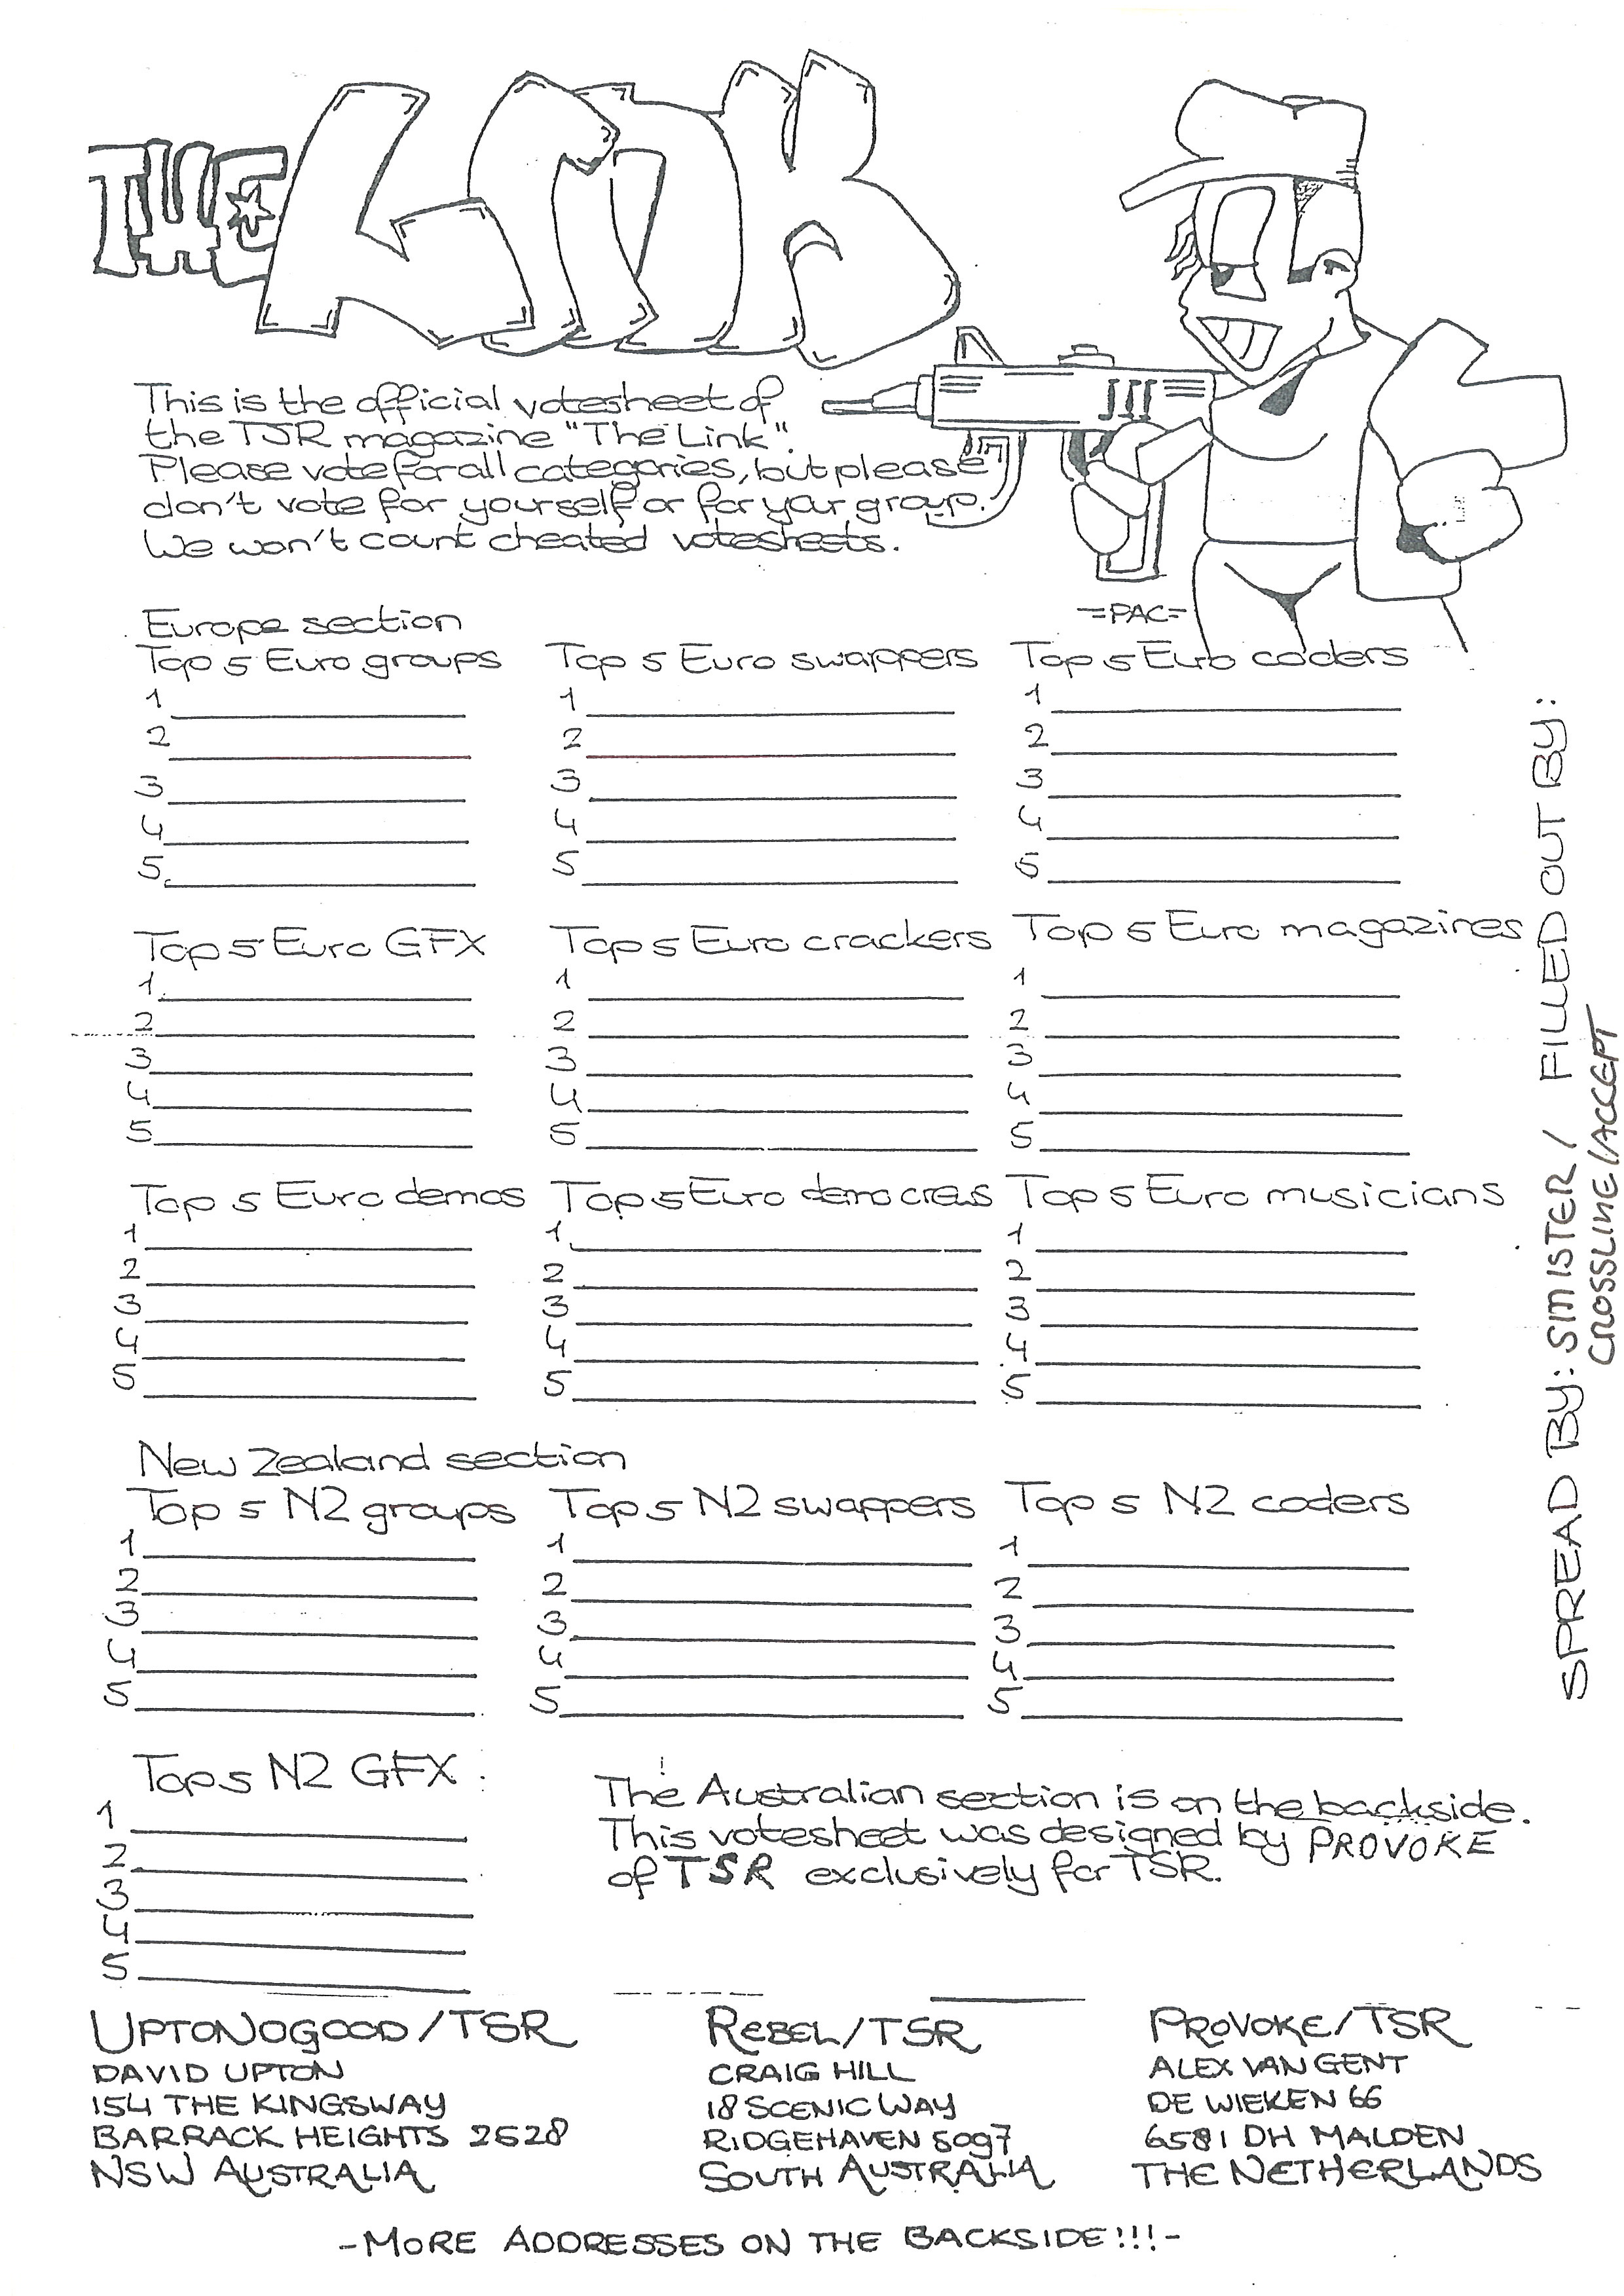 THE LINK
This is the official votesheet of
the TSR magazine "The Link".
Please vote for all categories, but please
don't vote for yourself or for your group.
We won't count cheated votesheets.
=PAC=
Europe section
Top 5 Euro groups
1
2
3
4
5
Top 5 Euro swappers
1
2
3
4
5
Top 5 Euro coders
1
2
3
4
5
Top 5 Euro GFX
1
2
3
4
5
Top 5 Euro crackers
1
2
3
4
5
Top 5 Euro magazines
1
2
3
4
5
Top 5 Euro demos
1
2
3
4
5
Top 5 Euro demo crews
1
2
3
4
5
Top 5 Euro musicians
1
2
3
4
5
New Zealand section
Top 5 NZ groups
1
2
3
4
5
Top 5 NZ swappers
1
2
3
4
5
Top 5 NZ coders
1
2
3
4
5
Top 5 NZ GFX
1
2
3
4
5
The Australian section is on the backside.
This votesheet was designed by PROVOKE
of TSR exclusively for TSR.
SPREAD BY: SINISTER / FILLED OUT BY:
CROSSLINE/ACCEPT
UPTONOGOOD/TSR
DAVID UPTON
154 THE KINGSWAY
BARRACK HEIGHTS 2528
NSW AUSTRALIA
REBEL/TSR
CRAIG HILL
18 SCENIC WAY
RIDGEHAVEN 5097
SOUTH AUSTRALIA
PROVOKE/TSR
ALEX VAN GENT
DE WIEKEN 66
6581 DH MALDEN
THE NETHERLANDS
-MORE ADDRESSES ON THE BACKSIDE!!!-